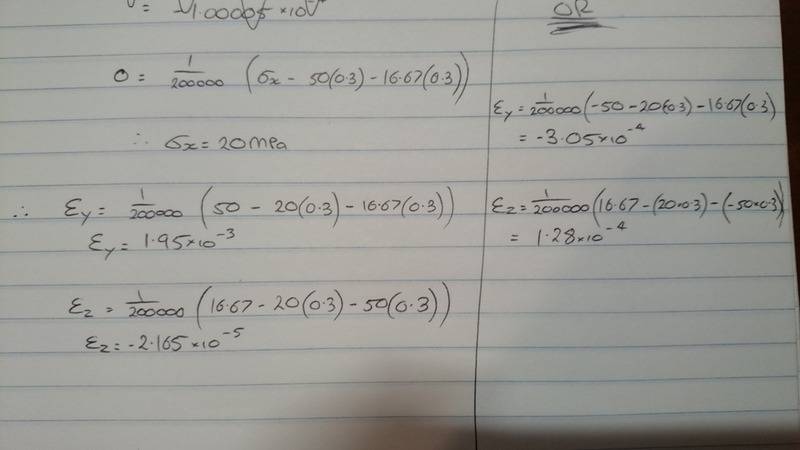 0 = 1/200000 (σx - 50(0.3) - 16.67(0.3))
∴ σx = 20mpa
∴ εy = 1/200000 (50 - 20(0.3) - 16.67(0.3))
εy = 1.95×10^-3
εz = 1/200000 (16.67 - 20(0.3) - 50(0.3))
εz = -2.165×10^-5
OR
εy = 1/200000 (-50 - 20(0.3) - 16.67(0.3)
= -3.05×10^-4
εz = 1/200000 (16.67 - (20×0.3) - (-50×0.3))
= 1.28×10^-4